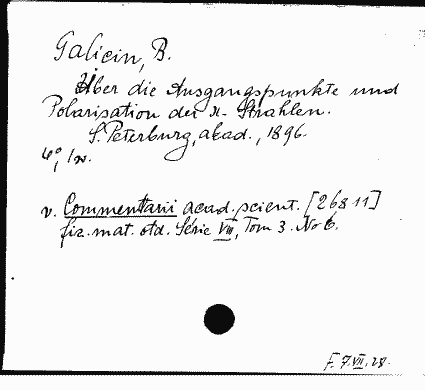 Galicin, B.
Über die Ausgangspunkte und
Polarisation der X-Strahlen.
S. Peterburg, akad., 1896.
4°, 1 w.
v. Commentarii acad. scient. [26811]
fiz. mat. otd. Série VIII, Tom 3. No 6.
F. 7.VII.28.